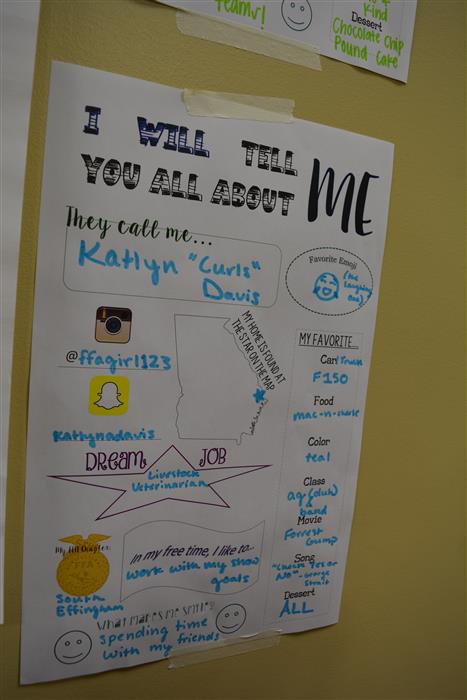 Teamr!
& 
Kind
Dessert
Chocolate Chip
Pound Cake
I WILL TELL
YOU ALL ABOUT
ME
They call me...
Katlyn "Curls"
Davis
Favorite Emoji
(the
laughing
one)
@ffagirl123
MY HOME IS FOUND AT
THE STAR ON THE MAP
Katlynadavis
DREAM JOB
Livestock
Veterinarian
MY FAVORITE...
Car/Truck
F150
Food
mac-n-cheese
Color
teal
Class
ag (duh)
& band
Movie
Forrest
Gump
Song
"Choose Yes or
No" - George
Strait
Dessert
ALL
My FFA Chapter:
FFA
South
Effingham
In my free time, I like to...
work with my show
goats
What Makes Me Smile?
Spending time
with my friends